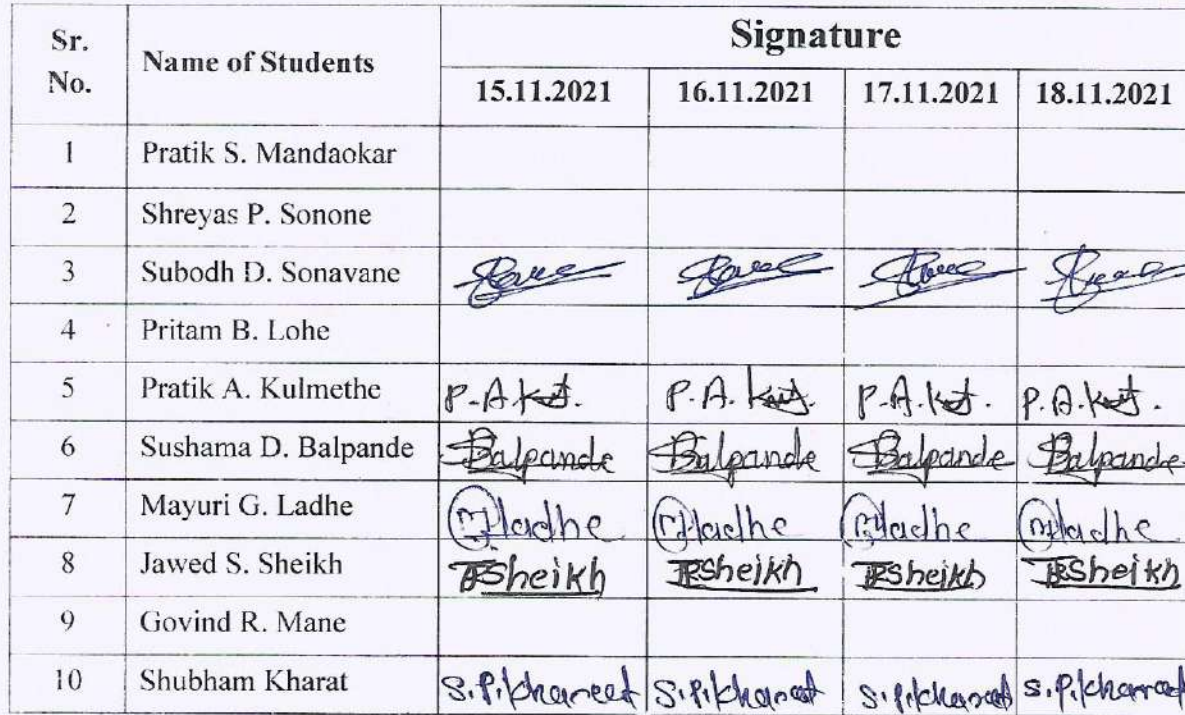 Sr. No. Name of Students Signature
15.11.2021 16.11.2021 17.11.2021 18.11.2021
1 Pratik S. Mandaokar
2 Shreyas P. Sonone
3 Subodh D. Sonavane
4 Pritam B. Lohe
5 Pratik A. Kulmethe P.A. P.A. P.A. P.A.
6 Sushama D. Balpande Balpande Balpande Balpande Balpande
7 Mayuri G. Ladhe Ladhe Ladhe Ladhe Ladhe
8 Jawed S. Sheikh Sheikh Sheikh Sheikh Sheikh
9 Govind R. Mane
10 Shubham Kharat S.P. S.P. S.P. S.P.